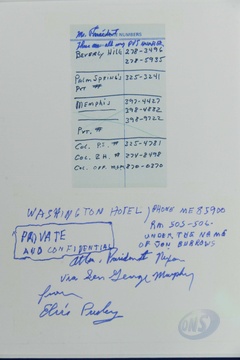 Mr. President
NUMBERS
These are all my PVT numbers
Beverly Hills 278-3496
278-5935
Palm Springs 325-3241
Pvt #
Memphis 397-4427
398-4882
398-9722
Pvt. #
Col. P.S. # 325-4781
Col. B.H. # 274-8498
Col. Off. MGM 870-0370
WASHINGTON HOTEL PHONE ME 85900
RM 505-506
UNDER THE NAME
OF JON BURROWS
PRIVATE
AND CONFIDENTIAL
Attn. President Nixon
via Sen George Murphy
from
Elvis Presley